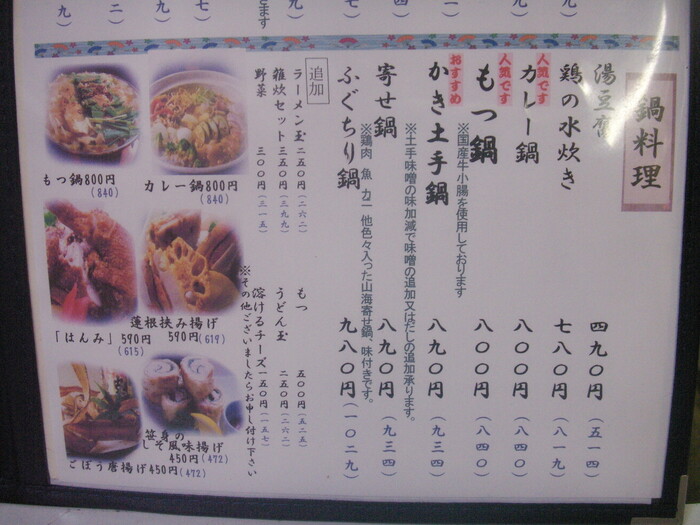 鍋料理
湯豆腐 四九〇円(五一四)
鶏の水炊き 七八〇円(八一九)
人気です
カレー鍋 八〇〇円(八四〇)
人気です
もつ鍋 八〇〇円(八四〇)
※国産牛小腸を使用しております
おすすめ
かき土手鍋 八九〇円(九三四)
※土手味噌の味加減で味噌の追加又はだしの追加承ります。
寄せ鍋 八九〇円(九三四)
※鶏肉 魚 カニ 他色々入った山海寄せ鍋、味付きです。
ふぐちり鍋 九八〇円(一〇二九)
追加
ラーメン玉 二五〇円(二六二)
雑炊セット 三五〇円(三九九)
野菜 三〇〇円(三一五)
もつ 五〇〇円(五二五)
うどん玉 二五〇円(二六二)
溶けるチーズ 一五〇円(一五七)
※その他ございましたらお申し付け下さい
もつ鍋800円
(840)
カレー鍋800円
(840)
「はんみ」590円
(615)
蓮根挟み揚げ
590円(619)
笹身の
しそ風味揚げ
450円(472)
ごぼう唐揚げ450円(472)